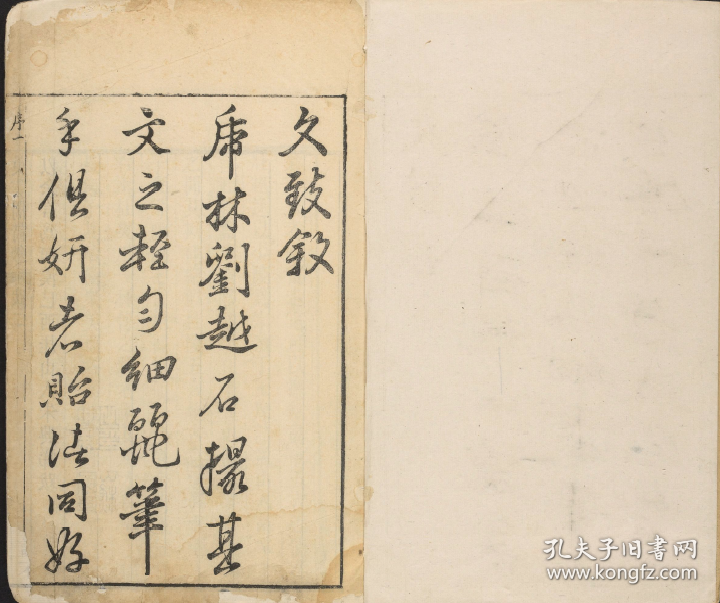 文致敘
虎林劉越石撮其
文之輕勻細麗筆
手俱妍者貽諸同好
序一
孔夫子旧书网
www.kongfz.com